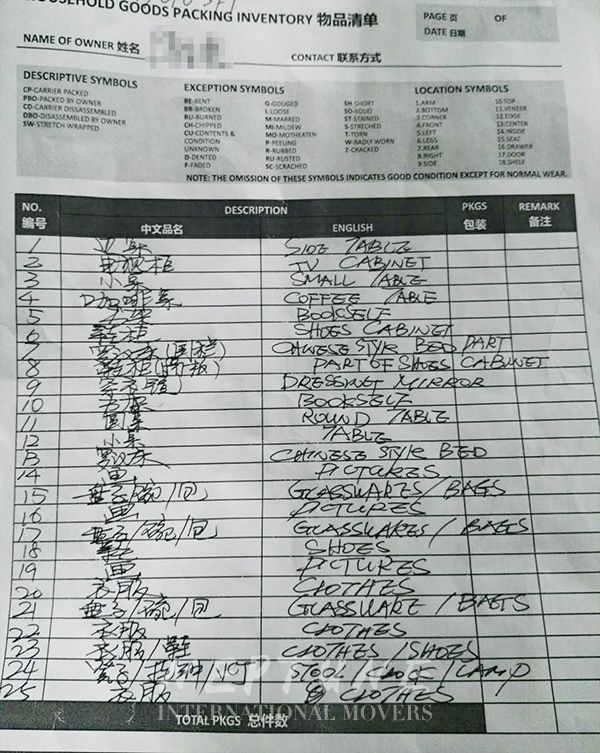 HOUSEHOLD GOODS PACKING INVENTORY 物品清单
PAGE 页 OF
DATE 日期
NAME OF OWNER 姓名
CONTACT 联系方式
DESCRIPTIVE SYMBOLS
CP-CARRIER PACKED
PBO-PACKED BY OWNER
CD-CARRIER DISSASSEMBLED
DBO-DISASSEMBLED BY OWNER
SW-STRETCH WRAPPED
EXCEPTION SYMBOLS
BE-BENT
BR-BROKEN
BU-BURNED
CH-CHIPPED
CU-CONTENTS &
CONDITION
UNKNOWN
D-DENTED
F-FADED
G-GOUGED
L-LOOSE
M-MARRED
MI-MILDEW
MO-MOTHEATEN
P-PEELING
R-RUBBED
RU-RUSTED
SC-SCRACHED
SH SHORT
SO-SOLID
ST-STAINED
S-STRECHED
T-TORN
W-BADLY WORN
Z-CRACKED
LOCATION SYMBOLS
1.ARM
2.BOTTOM
3.CORNER
4.FRONT
5.LEFT
6.LEGS
7.REAR
8.RIGHT
9.SIDE
10.TOP
11.VENEER
12.EDGE
13.CENTER
14.INSIDE
15.SEAT
16.DRAWER
17.DOOR
18.SHELF
NOTE: THE OMISSION OF THESE SYMBOLS INDICATES GOOD CONDITION EXCEPT FOR NORMAL WEAR.
NO. DESCRIPTION PKGS REMARK
编号 中文品名 ENGLISH 包装 备注
1 SIDE TABLE
2 电视柜 TV CABINET
3 小桌 SMALL TABLE
4 咖啡桌 COFFEE TABLE
5 书架 BOOKSELF
6 鞋柜 SHOES CABINET
7 罗汉床(围栏) CHINESE STYLE BED PART
8 鞋柜(隔板) PART OF SHOES CABINET
9 DRESSING MIRROR
10 书架 BOOKSELF
11 圆桌 ROUND TABLE
12 小桌 TABLE
13 罗汉床 CHINESE STYLE BED
14 画 PICTURES
15 盘子/碗/包 GLASSWARES/BAGS
16 画 PICTURES
17 盘子/碗/包 GLASSWARES/BAGS
18 鞋 SHOES
19 画 PICTURES
20 衣服 CLOTHES
21 盘子/碗/包 GLASSWARE/BAGS
22 衣服 CLOTHES
23 衣服/鞋 CLOTHES/SHOES
24 STOOL CLOCK/LAMP
25 衣服 CLOTHES
NEPTUNE
INTERNATIONAL MOVERS
TOTAL PKGS 总件数